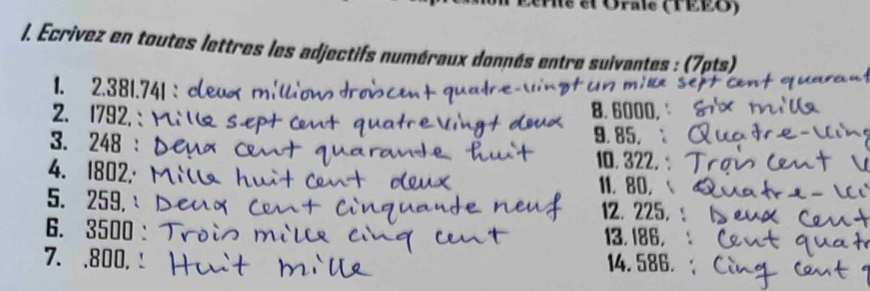 Ecrite et Orale (TEEO)
I. Ecrivez en toutes lettres les adjectifs numéraux donnés entre suivantes : (7pts)
1. 2.381.741 : deux millions troiscent quatre-vingt un mille sept cent quarant
2. 1792, : Mille sept cent quatre vingt deux
3. 248 : Deux cent quarante huit
4. 1802, : Mille huit cent deux
5. 259, : Deux cent cinquante neuf
6. 3500 : Trois mille cinq cent
7. .800, : Huit mille
8. 6000, : Six mille
9. 85, : Quatre-vin
10. 322, : Trois cent
11. 80, : Quatre-vi
12. 225, : Deux cent
13. 186, : Cent quatr
14. 586. : Cinq cent